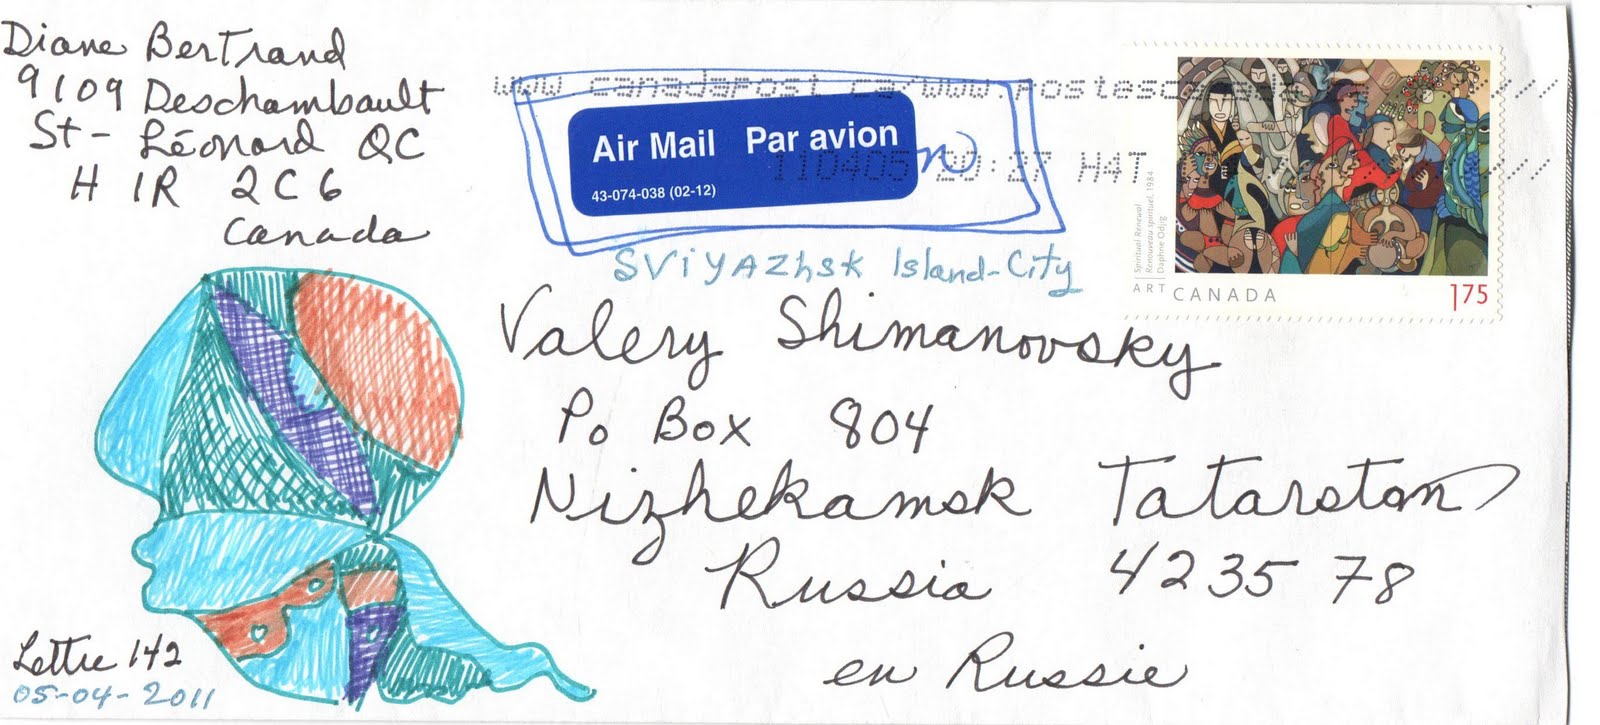 Diane Bertrand
9109 Deschambault
St-Léonard QC
H1R 2C6
Canada
www.canadapost.ca www.postescanada
110405 20:27 H4T
Air Mail Par avion
43-074-038 (02-12)
Spiritual Renewal
Renouveau spirituel, 1984
Daphne Odjig
ART CANADA
175
Sviyazhsk Island-City
Valery Shimanovsky
Po Box 804
Nizhekamsk Tatarstan
Russia 423578
en Russie
Lettre 142
05-04-2011